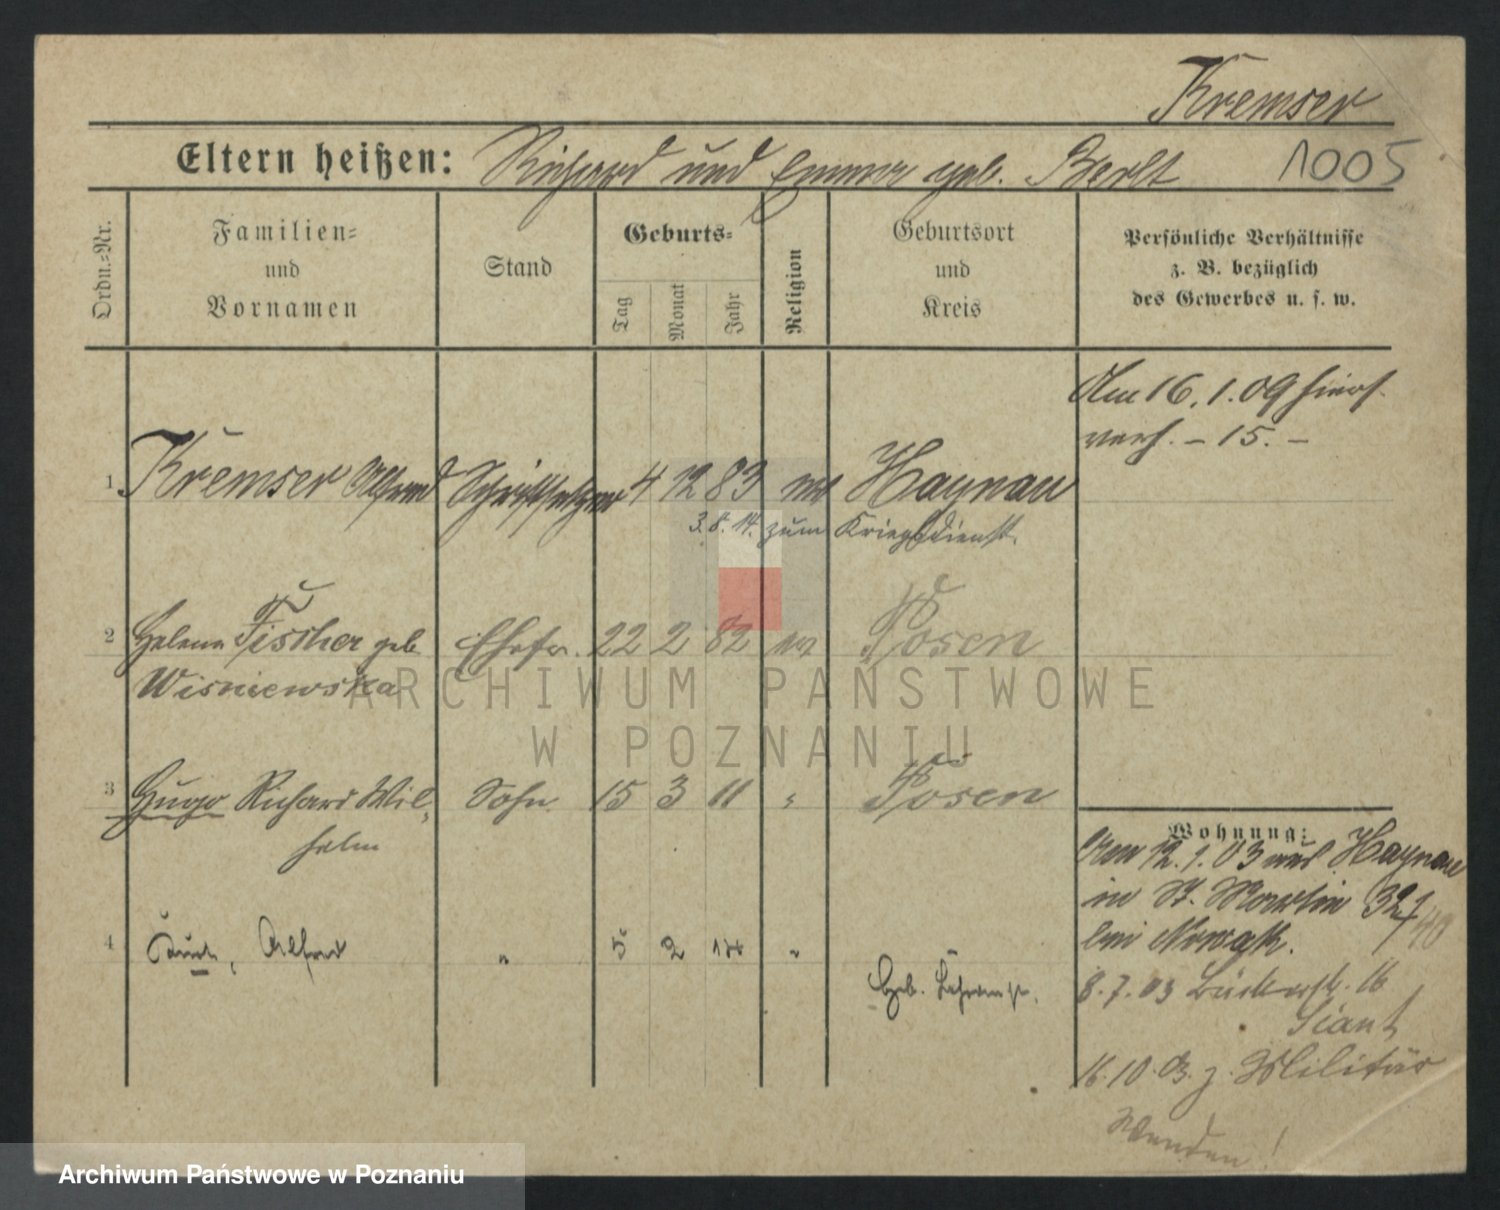 Kremser
Eltern heißen: Richard und Emma geb. Berlt 1005
Ordn.=Nr.
Familien=
und
Vornamen
Stand
Geburts=
Tag
Monat
Jahr
Religion
Geburtsort
und
Kreis
Persönliche Verhältnisse
z. B. bezüglich
des Gewerbes u. s. w.
Am 16.1.09 hiers.
verh. – 15. –
1 Kremser Alfred Schriftsetzer 4 12 83 Haynau
3.8.14. zum Kriegsdienst.
2 Helene Fischer geb Ehefr. 22 2 82 Posen
Wisniewska
3 Hugo Richard Wil- Sohn 15 3 11 " Posen
helm
4 Alfred " 5 2 "
Geb.
Wohnung:
Am 12.1.03 aus Haynau
in St. Martin 32
bei Nowak.
8.7.03 16
16.10.03 z. Militär
Wenden!
ARCHIWUM PAŃSTWOWE
W POZNANIU
Archiwum Państwowe w Poznaniu